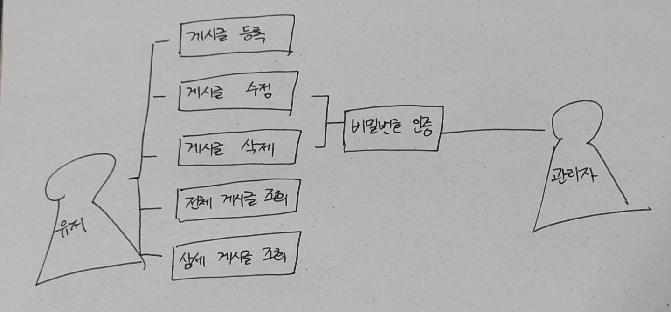 게시글 등록
게시글 수정
게시글 삭제
전체 게시글 조회
상세 게시글 조회
유저
비밀번호 인증
관리자